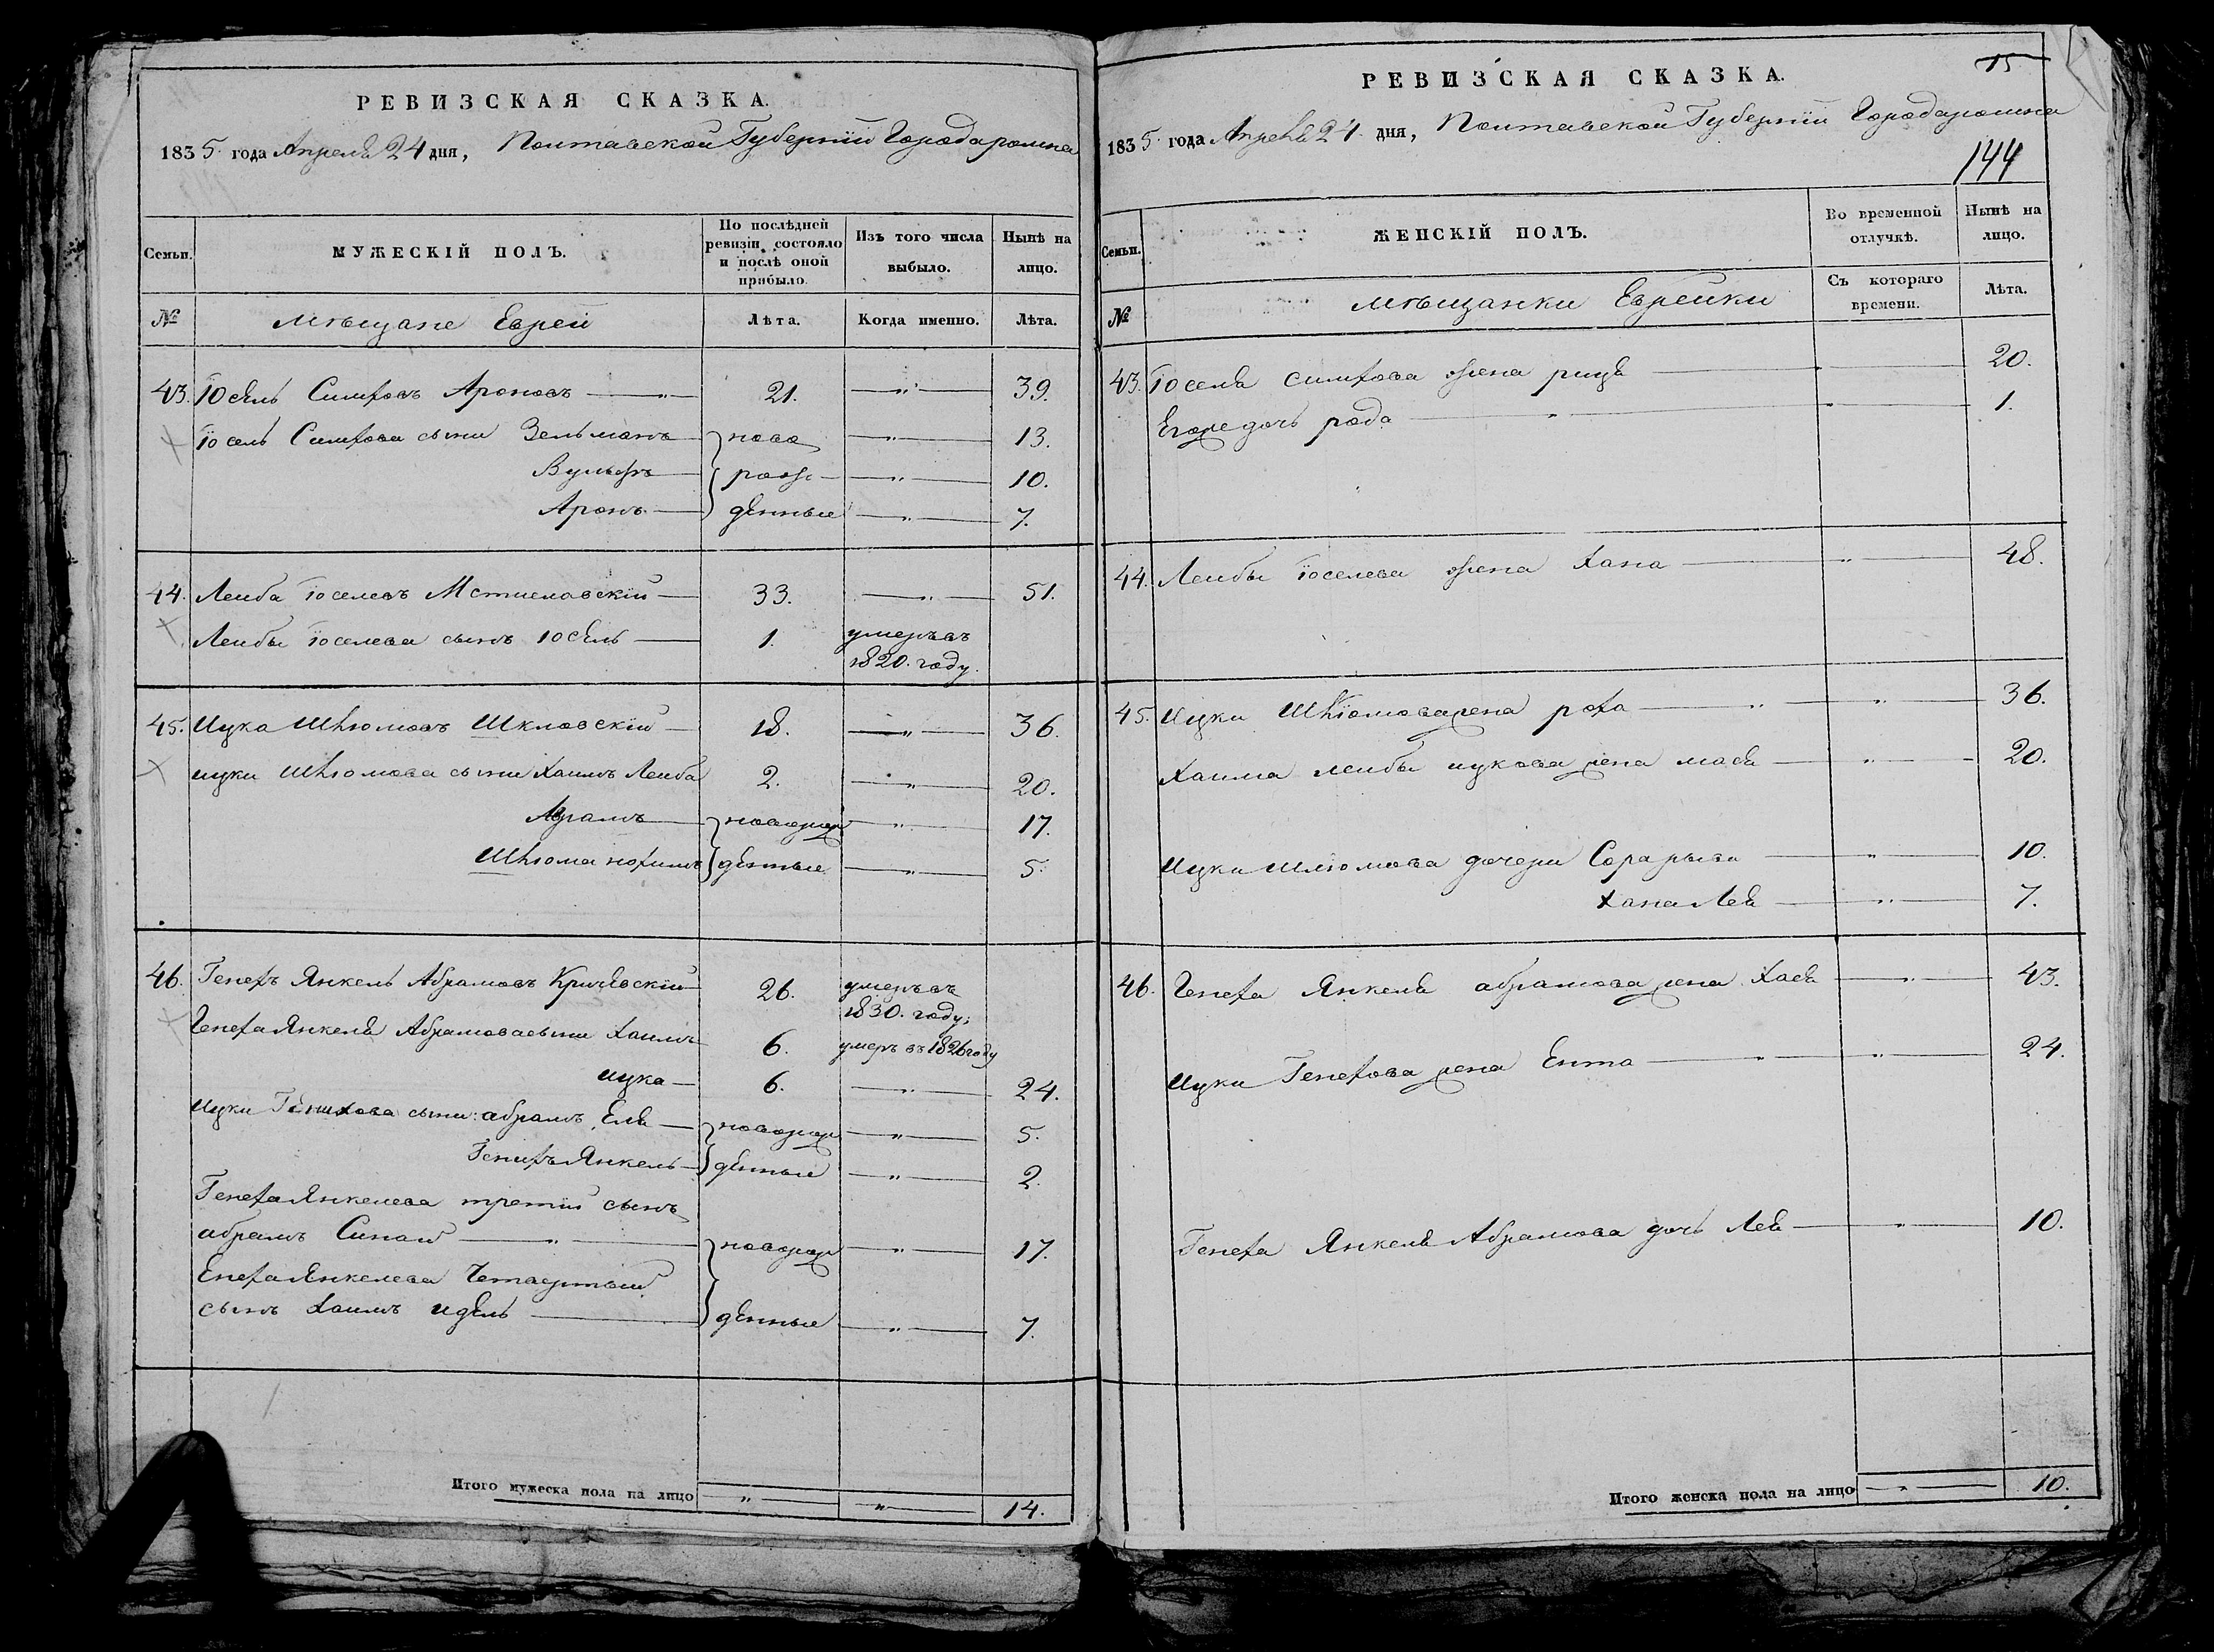 РЕВИЗСКАЯ СКАЗКА.
1835 года Апреля 24 дня, Полтавской Губернїи Города ромна
Семьи.
МУЖЕСКІЙ ПОЛЪ.
По послѣдней ревизіи состояло и послѣ оной прибыло.
Изъ того числа выбыло.
Нынѣ на лицо.
№
мѣщане Евреи
Лѣта.
Когда именно.
Лѣта.
43. Іосель Симховъ Ароновъ — 21. — 39.
Іосель Симхова сыни Зельманъ — ново — 13.
Вульфъ — рож — 10.
Аронъ — денные — 7.
44. Леиба Іоселевъ Мстиславскій — 33. — 51.
Леибы Іоселева сынъ Іосель — 1. умеръ въ
1820. году.
45. Ицка Шлюмовъ Шкловскій — 18. — 36.
ицки Шлюмова сыни Хаимъ Леиба 2. — 20.
Абрамъ — новорож — 17.
Шлюма нохимъ денные — 5.
46. Генехъ Янкель Абрамовъ Кричевскій — 26. умеръ въ
1830. году;
Генеха Янкеля Абрамова сыни Хаимъ 6. умеръ въ 1826 году
ицка — 6. — 24.
Ицки Генихова сыни: абрамъ Еля — новорож — 5.
Генихъ Янкель — денные — 2.
Генеха Янкелева третій сынъ
абрамъ Синай — новорож — 17.
Енеха Янкелева Четвертый
сынъ Хаимъ идель — денные — 7.
Итого мужеска пола на лицо — 14.
РЕВИЗСКАЯ СКАЗКА.
15
1835 года Апреля 24 дня, Полтавской Губернїи Города ромна
144
Семьи.
ЖЕНСКІЙ ПОЛЪ.
Во временной отлучкѣ.
Нынѣ на лицо.
№
мѣщанки Еврейки
Съ котораго времени.
Лѣта.
43. Іоселя симхова жена рица — 20.
Егоже дочь рода — 1.
44. Леибы Іоселева жена Хана — 48.
45. Ицки Шлюмова жена роха — 36.
Хаима леибы ицкова жена мася — 20.
Ицки шлюмова дочери Сора рыва — 10.
Хана Лея — 7.
46. Генеха Янкеля абрамова жена Хася — 43.
Ицки Генехова жена Ента — 24.
Генеха Янкеля Абрамова дочь Лея — 10.
Итого женска пола на лицо — 10.